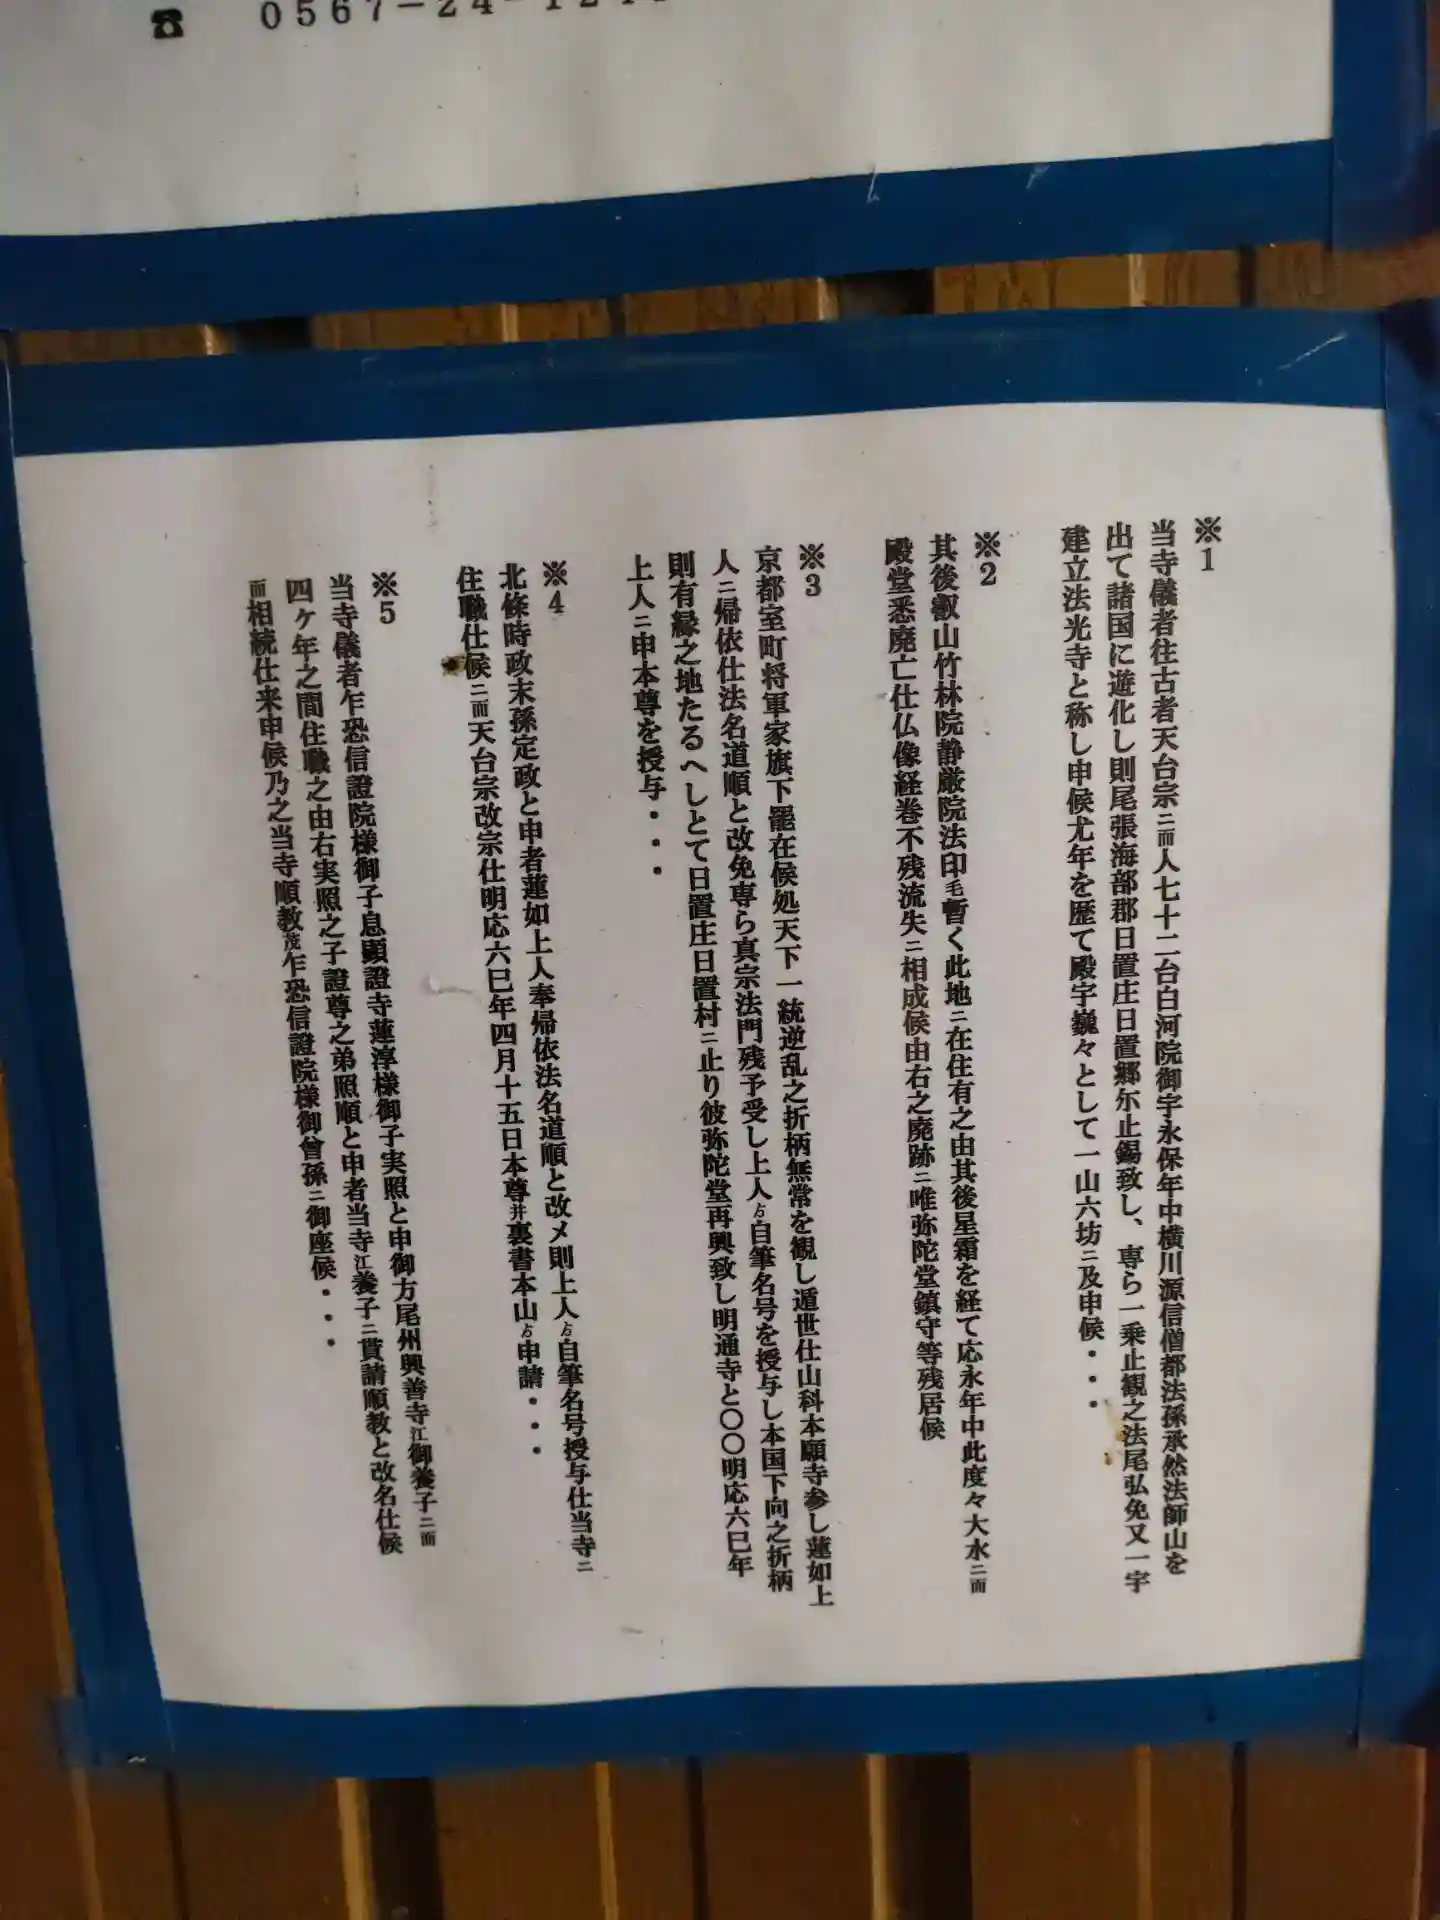 ☎ 0567-24-
※1
当寺儀者往古者天台宗ニ而人七十二台白河院御宇永保年中横川源信僧都法孫承然法師山を
出て諸国に遊化し則尾張海部郡日置庄日置郷尓止錫致し、専ら一乗止観之法尾弘免又一宇
建立法光寺と称し申候尤年を歴て殿宇巍々として一山六坊ニ及申候・・・
※2
其後叡山竹林院静厳院法印毛暫く此地ニ在住有之由其後星霜を経て応永年中此度々大水ニ而
殿堂悉廃亡仕仏像経巻不残流失ニ相成候由右之廃跡ニ唯弥陀堂鎮守等残居候
※3
京都室町将軍家旗下罷在候処天下一統逆乱之折柄無常を観し遁世仕山科本願寺参し蓮如上
人ニ帰依仕法名道順と改免専ら真宗法門残予受し上人ゟ自筆名号を授与し本国下向之折柄
則有縁之地たるへしとて日置庄日置村ニ止り彼弥陀堂再興致し明通寺と〇〇明応六巳年
上人ニ申本尊を授与・・・
※4
北條時政末孫定政と申者蓮如上人奉帰依法名道順と改メ則上人ゟ自筆名号授与仕当寺ニ
住職仕候ニ而天台宗改宗仕明応六巳年四月十五日本尊并裏書本山ゟ申請・・・
※5
当寺儀者乍恐信證院様御子息顕證寺蓮淳様御子実照と申御方尾州興善寺江御養子ニ而
四ケ年之間住職之由右実照之子證尊之弟照順と申者当寺江養子ニ貰請順教と改名仕候
而相続仕来申候乃之当寺順教茂乍恐信證院様御曾孫ニ御座候・・・